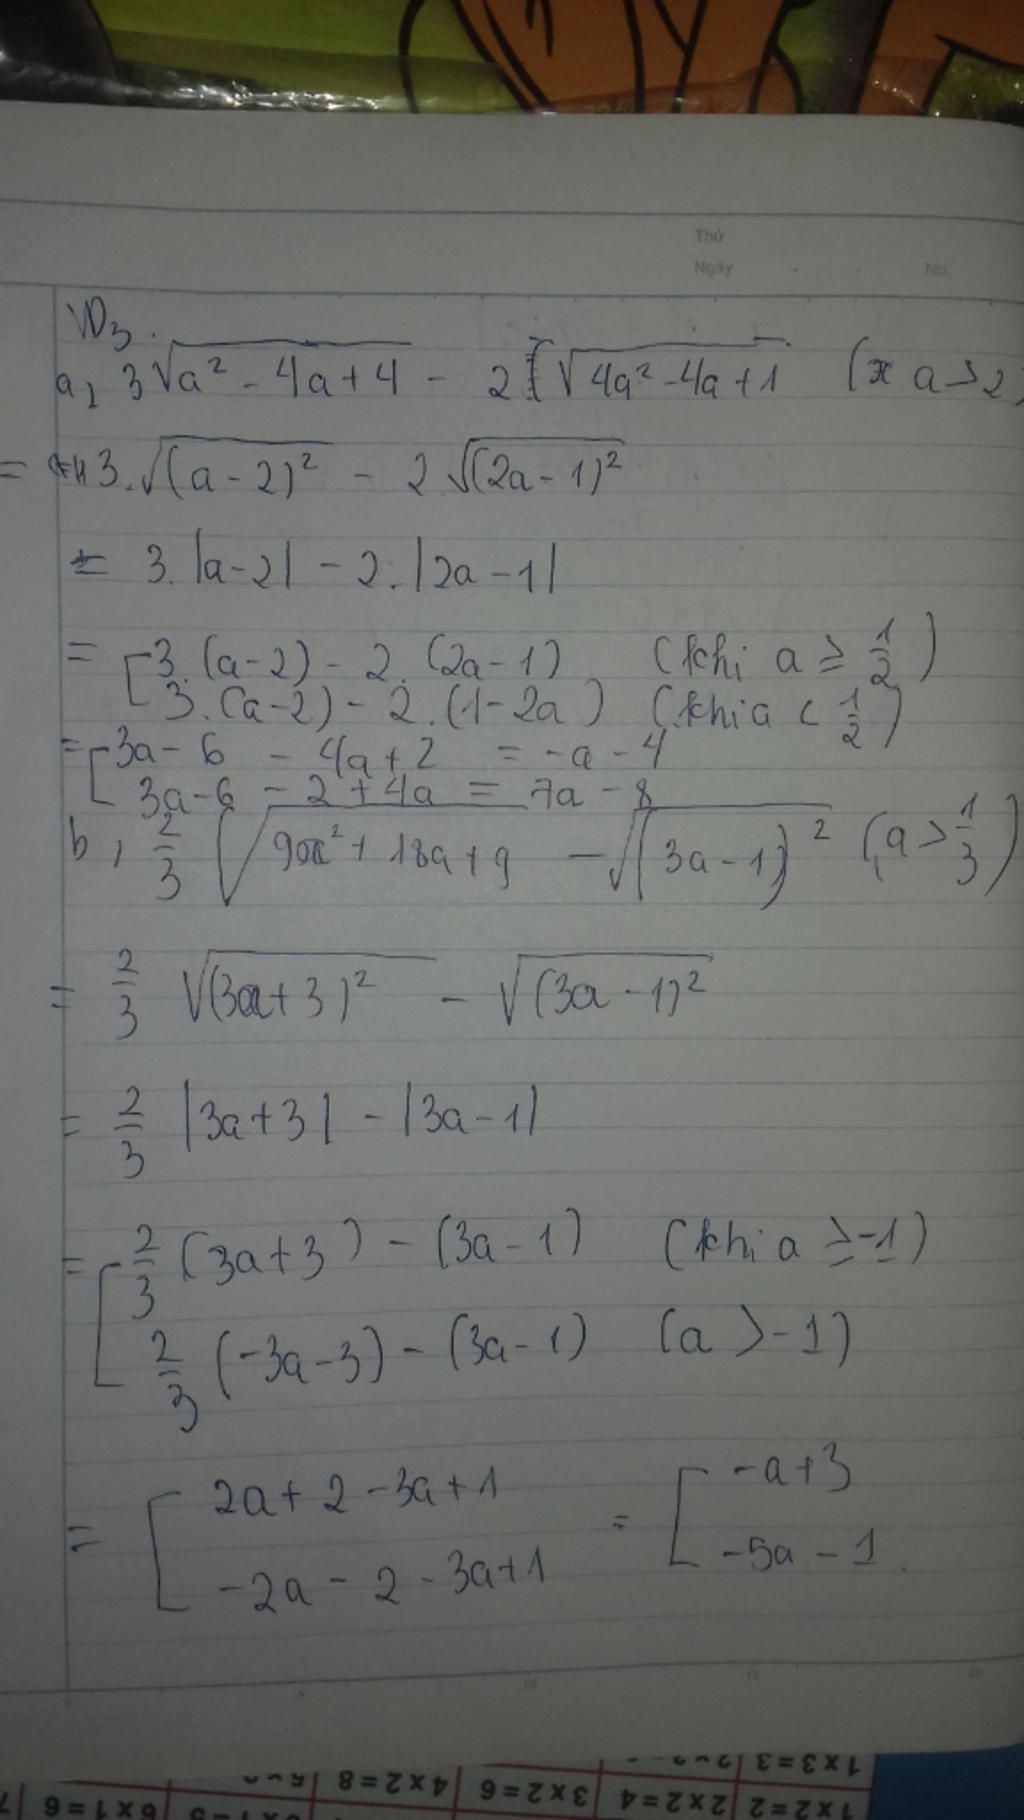 Thứ
Ngày . . No.
VD3.
a, 3√(a² - 4a + 4) - 2√(4a² - 4a + 1) (a > 2)
= 3.√(a - 2)² - 2.√(2a - 1)²
= 3.|a - 2| - 2.|2a - 1|
= [ 3.(a - 2) - 2.(2a - 1) (khi a ≥ 1/2)
3.(a - 2) - 2.(1 - 2a) (khi a < 1/2)
= [ 3a - 6 - 4a + 2 = -a - 4
3a - 6 - 2 + 4a = 7a - 8
b, 2/3 √(9a² + 18a + 9) - √(3a - 1)² (a > 1/3)
= 2/3 √(3a + 3)² - √(3a - 1)²
= 2/3 |3a + 3| - |3a - 1|
= [ 2/3 (3a + 3) - (3a - 1) (khi a ≥ -1)
2/3 (-3a - 3) - (3a - 1) (a > -1)
= [ 2a + 2 - 3a + 1 = [ -a + 3
-2a - 2 - 3a + 1 -5a - 1.
0 5 10 15 20
1x3=3
4x2=8 3x2=6 2x2=4 1x2=2
6x1=6